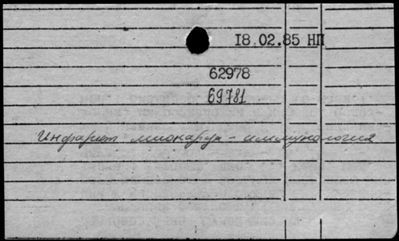 18.02.85 НП
62978
69781
Инфаркт миокарда - иммунология